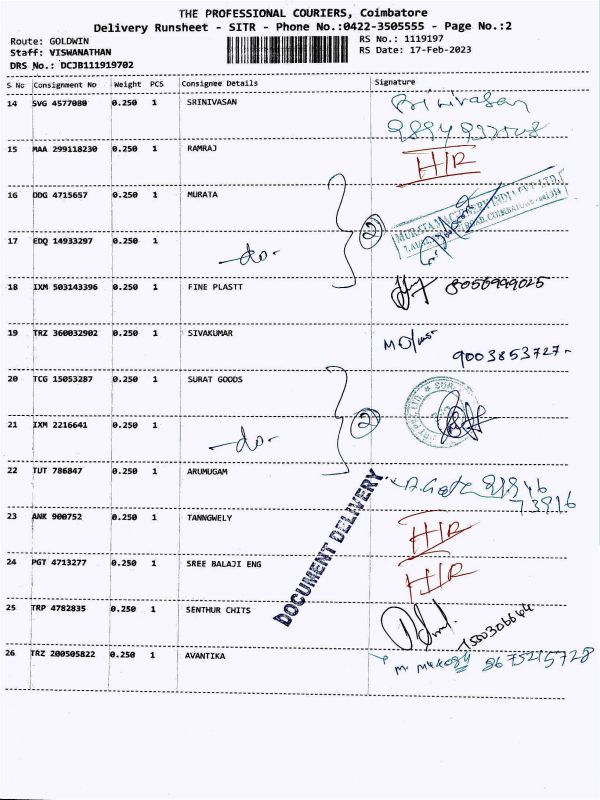 THE PROFESSIONAL COURIERS, Coimbatore
Delivery Runsheet - SITR - Phone No.:0422-3505555 - Page No.:2
Route: GOLDWIN
RS No.: 1119197
Staff: VISWANATHAN
RS Date: 17-Feb-2023
DRS No.: DCJB111919702
S No Consignment No Weight PCS Consignee Details Signature
14 SVG 4577080 0.250 1 SRINIVASAN Srinivasan
15 MAA 299118230 0.250 1 RAMRAJ H/R
16 DDG 4715657 0.250 1 MURATA
17 EDQ 14933297 0.250 1 -do- 2
18 IXM 503143396 0.250 1 FINE PLASTT 8056999025
19 TRZ 360032902 0.250 1 SIVAKUMAR 9003853727
20 TCG 15053287 0.250 1 SURAT GOODS
21 IXM 2216641 0.250 1 -do- 2
22 TUT 786847 0.250 1 ARUMUGAM
23 ANK 900752 0.250 1 TANNGWELY H/R
24 PGT 4713277 0.250 1 SREE BALAJI ENG H/R
25 TRP 4782835 0.250 1 SENTHUR CHITS
26 TRZ 200505822 0.250 1 AVANTIKA 8675215728
DOCUMENT DELIVERY